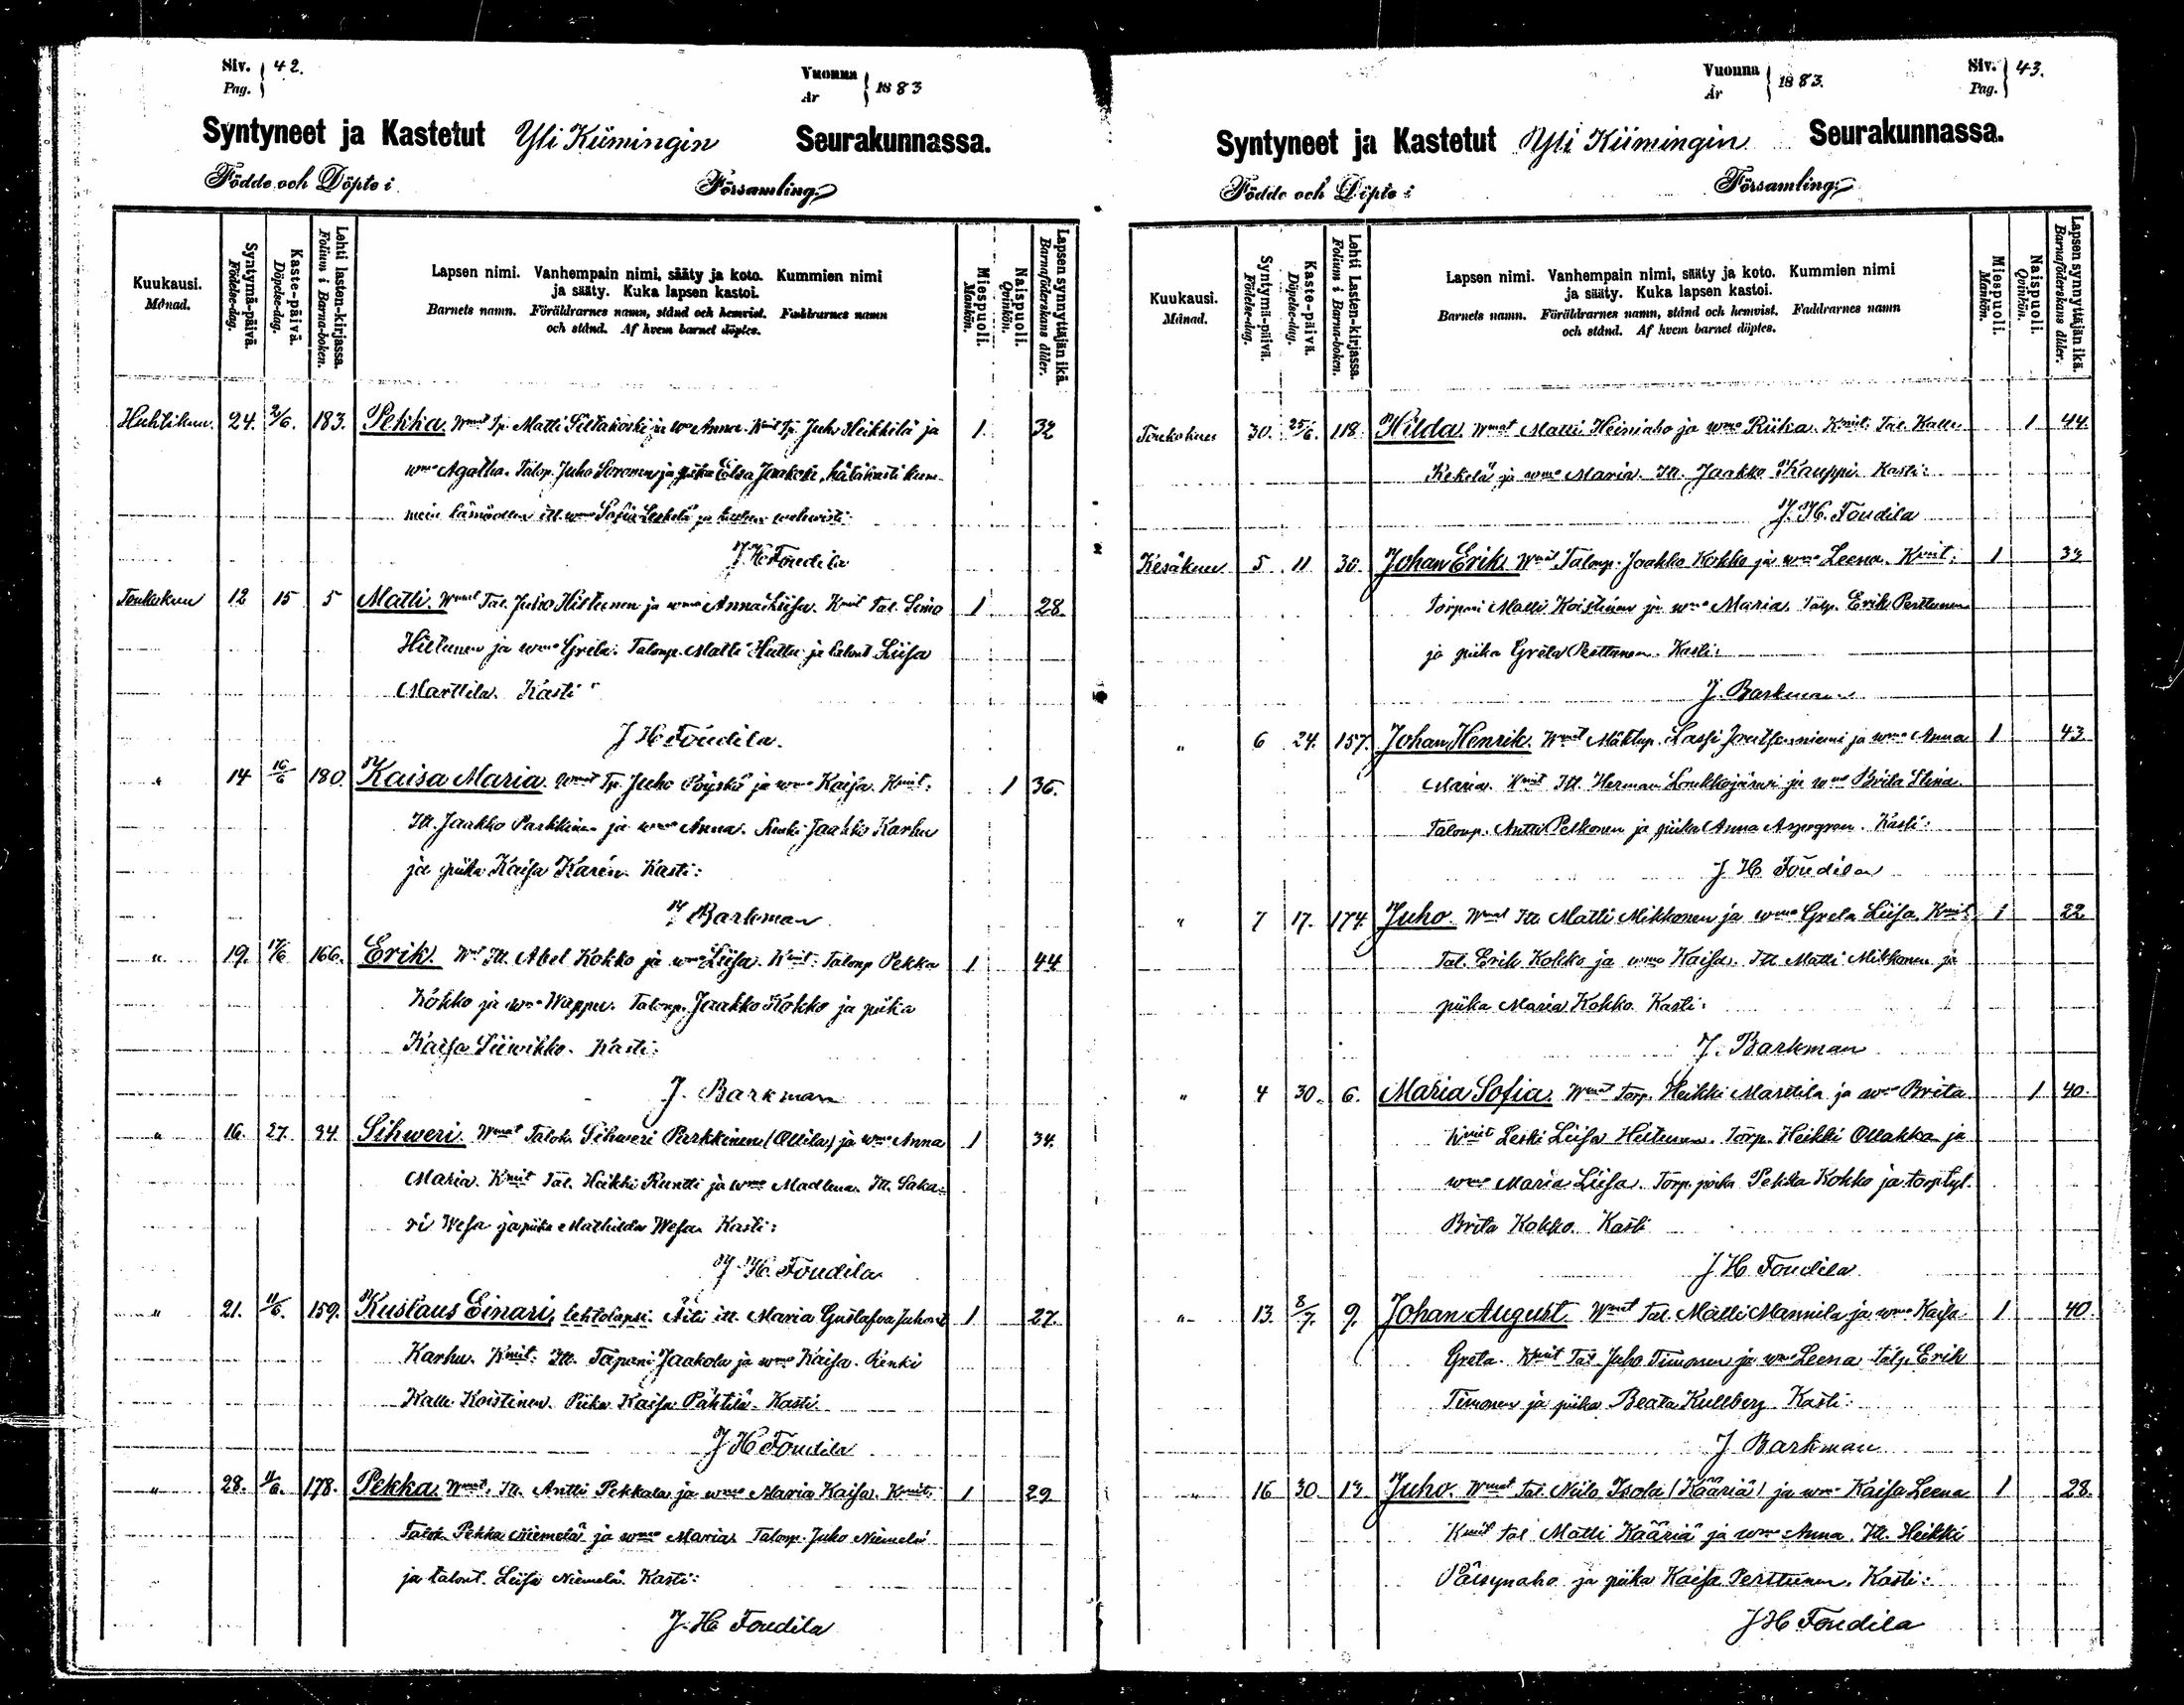 Siv. 42.
Pag.
Vuonna 1883
År
Syntyneet ja Kastetut Yli Kiimingin Seurakunnassa.
Födde och Döpte i Församling.
Kuukausi.
Månad.
Syntymä-päivä.
Födelse-dag.
Kaste-päivä.
Döpelse-dag.
Lehti lasten-kirjassa.
Folium i Barna-boken.
Lapsen nimi. Vanhempain nimi, sääty ja koto. Kummien nimi
ja sääty. Kuka lapsen kastoi.
Barnets namn. Föräldrarnes namn, stånd och hemvist. Faddrarnes namn
och stånd. Af hvem barnet döptes.
Miespuoli.
Mankön.
Naispuoli.
Qvinkön.
Lapsen synnyttäjän ikä.
Barnaföderskans ålder.
Huhtikuu. 24. 2/6. 183. Pekka. Wmat Tp. Matti Siltakoski ja wmo Anna. Kmit Tp. Juho Heikkilä ja 1 32
wmo Agatha. Talop. Juho Soronen ja piika Eelsa Jaakola, hätäkasti kum-
mein läsnäollen itl. wmo Sofia
J. H. Toudila
Toukokuu 12 15 5 Matti. Wmat Tal. Juho Hiltunen ja wmo Anna Liisa. Kmit Tal. Simo 1 28.
Hiltunen ja wmo Greta. Talonp. Matti Huttu ja talont. Liisa
Marttila. Kasti
J H Toudila.
" 14 10/6 180. Kaisa Maria. Wmat Tp. Juho Pöyskö ja wmo Kaisa. Kmit. 1 36.
Itl. Jaakko Parkkinen ja wmo Anna. Renki Jaakko Karhu
ja piika Kaisa Karén. Kasti:
J Barkman
" 19. 17/6 166. Erik. Wat Itl. Abel Kokko ja wmo Liisa. Kmit. Talonp Pekka 1 44
Kokko ja wmo Wappu. Talonp. Jaakko Kokko ja piika
Kaisa Siiwikko. Kasti:
J. Barkman
" 16. 27. 34. Sihweri. Wmat Talok. Sihweri Parkkinen (Ollila) ja wmo Anna 1 34.
Maria. Kmit Tal. Heikki Runtti ja wmo Madlena. Itl. Saka-
ri Wesa ja piika Mathilda Wesa. Kasti:
J. H. Toudila
" 21. 11/6. 159. Kustaus Einari, lehtolapsi. Äiti itl. Maria Gustafva Juhont. 1 27.
Karhu. Kmit. Itl. Tapani Jaakola ja wmo Kaisa. Renki
Kalle Koistinen. Piika Kaisa Pahtila. Kasti.
J H Toudila
" 28. 11/6. 178. Pekka. Wmat. Itl. Antti Pekkala ja wmo Maria Kaisa. Kmit. 1 29
Talok. Pekka Niemelä ja wmo Maria. Talonp. Juho Niemelä
ja talont. Liisa Niemelä. Kasti:
J. H. Toudila
Vuonna 1883.
År
Siv. 43.
Pag.
Syntyneet ja Kastetut Yli Kiimingin Seurakunnassa.
Födde och Döpte i Församling.
Kuukausi.
Månad.
Syntymä-päivä.
Födelse-dag.
Kaste-päivä.
Döpelse-dag.
Lehti Lasten-kirjassa.
Folium i Barna-boken.
Lapsen nimi. Vanhempain nimi, sääty ja koto. Kummien nimi
ja sääty. Kuka lapsen kastoi.
Barnets namn. Föräldrarnes namn, stånd och hemvist. Faddrarnes namn
och stånd. Af hvem barnet döptes.
Miespuoli.
Mankön.
Naispuoli.
Qvinkön.
Lapsen synnyttäjän ikä.
Barnaföderskans ålder.
Toukokuu 30. 25/6. 118. Hilda. Wmat Matti Heiniaho ja wmo Riika. Kmit. Tal. Kalle 1 44.
Kekelä ja wmo Maria. Itl. Jaakko Kauppi. Kasti:
J. H. Toudila
Kesäkuu 5 11 30. Johan Erik. Wmat Talonp. Jaakko Kokko ja wmo Leena. Kmit: 1 33
Torpari Matti Koistinen ja wmo Maria. Talp. Erik Perttunen
ja piika Greta Perttunen. Kasti:
J. Barkman
" 6 24. 157. Johan Henrik. Wmat Mäktup. Lassi Joutseniemi ja wmo Anna 1 43
Maria. Kmit Itl. Herman Loukkojärwi ja wmo Brita Stina.
Talonp. Antti Pelkonen ja piika Anna Aspegren. Kasti:
J H Toudila
" 7 17. 174. Juho. Wmat Itl. Matti Mikkonen ja wmo Greta Liisa. Kmit 1 22
Tal. Erik Kokko ja wmo Kaisa. Itl Matti Mikkonen ja
piika Maria Kokko. Kasti:
J. Barkman
" 4 30. 6. Maria Sofia. Wmat Torp. Heikki Marttila ja wmo Brita 1 40.
Kmit Leski Liisa Heitunen. Torp. Heikki Ollakka ja
wmo Maria Liisa. Torp. poika Pekka Kokko ja torp.tyt.
Brita Kokko. Kasti
J H Toudila
" 13. 8/7. 9. Johan August. Wmat Tal. Matti Mannila ja wmo Kaisa 1 40.
Greta. Kmit Tal Juho Timonen ja wmo Leena. talp. Erik
Timonen ja piika Beata Kullberg. Kasti:
J Barkman
" 16 30 13. Juho. Wmat Tal. Niilo Isola (Kääriä) ja wmo Kaisa Leena 1 28.
Kmit tal Matti Kääriä ja wmo Anna. Itl. Heikki
Päisynaho ja piika Kaisa Perttunen. Kasti:
J H Toudila